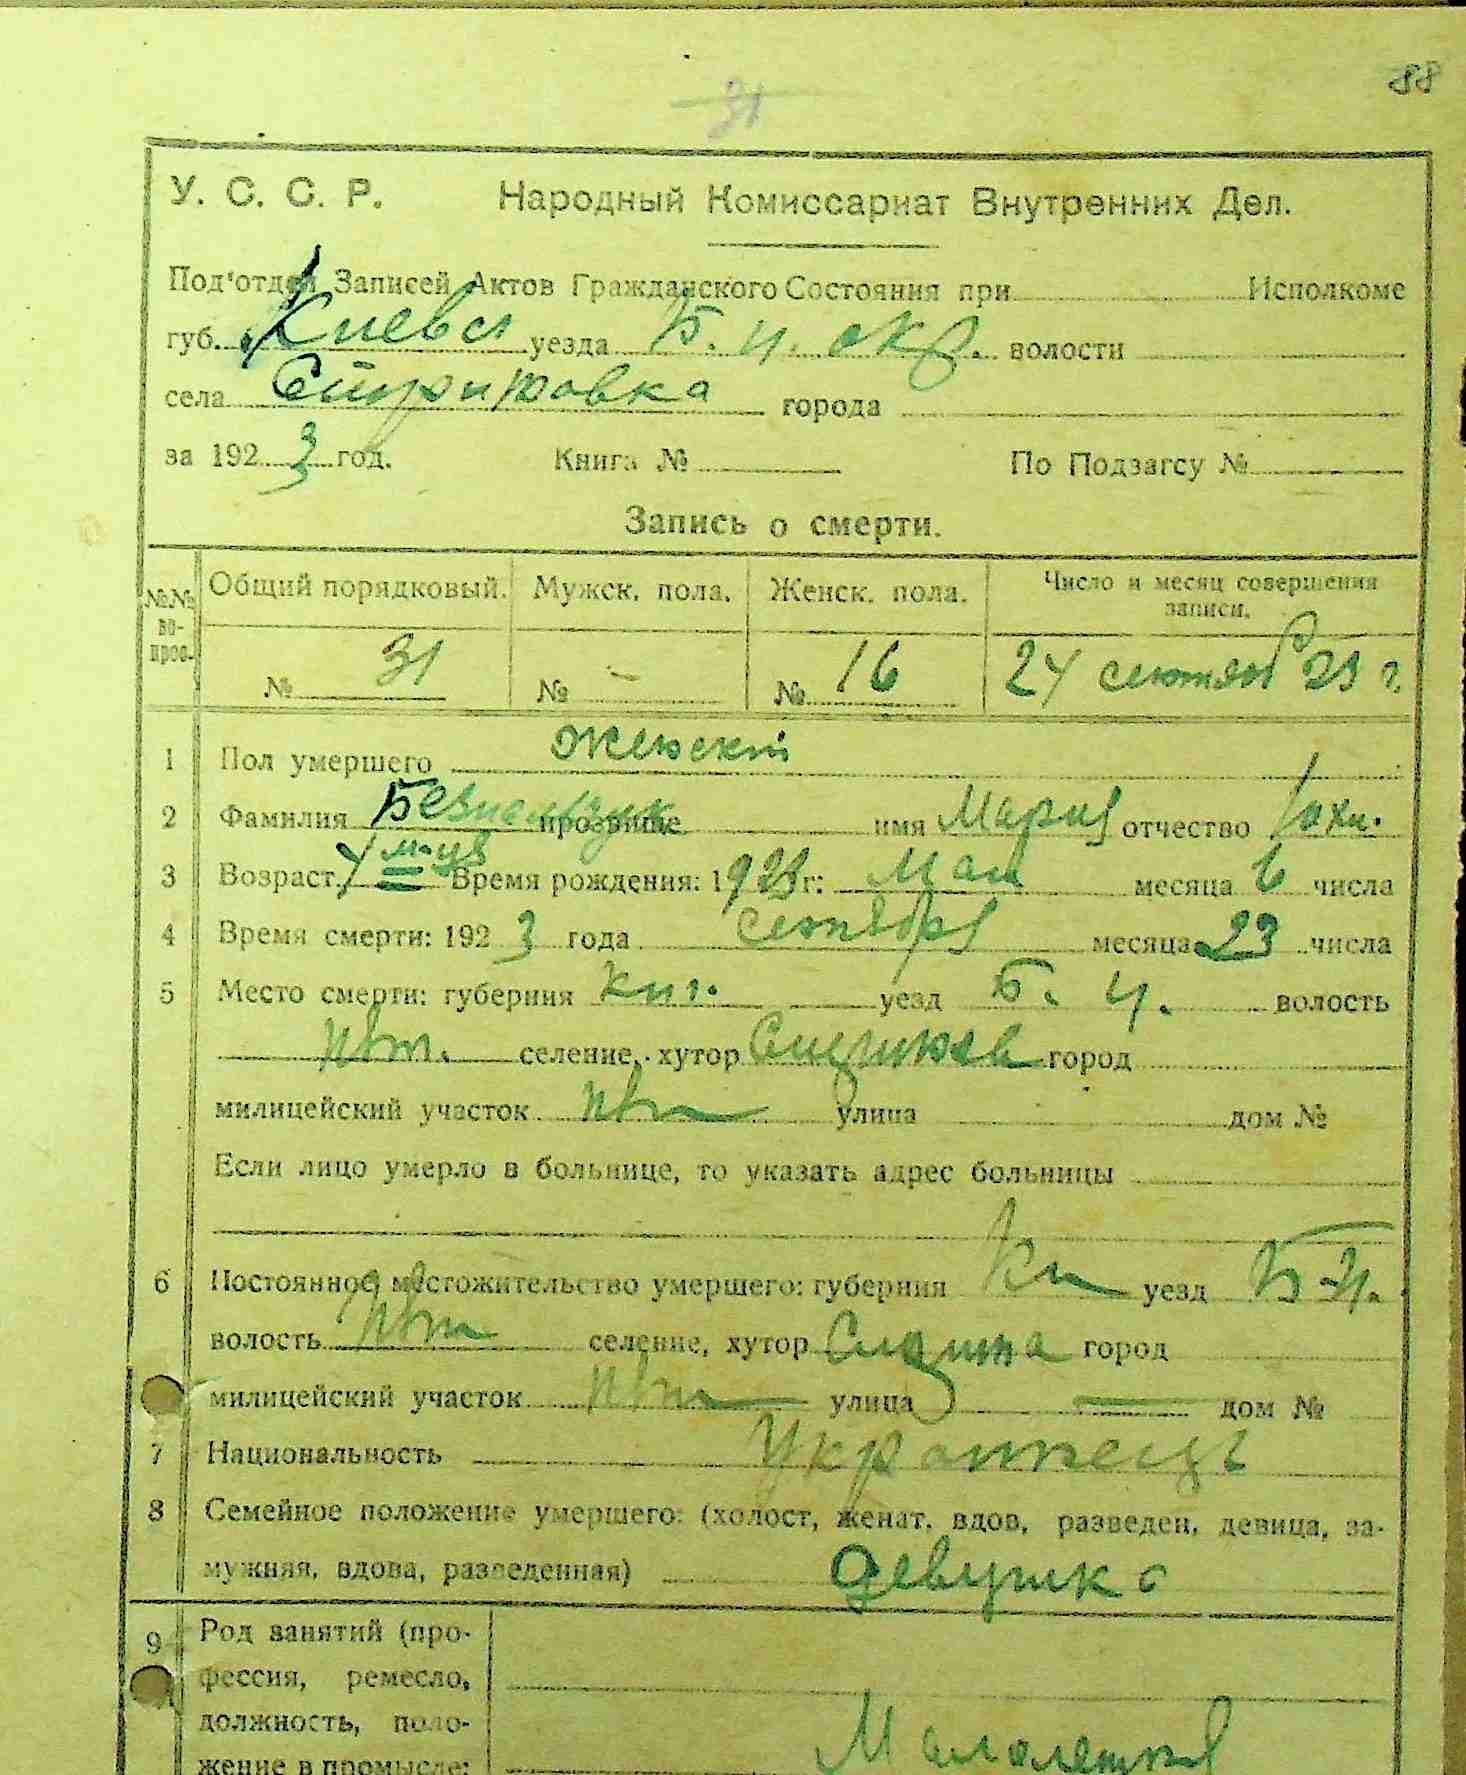 88
31
У. С. С. Р. Народный Комиссариат Внутренних Дел.
Под'отдел Записей Актов Гражданского Состояния при Исполкоме
губ. Киевск уезда Б. Ц. окр. волости
села города
за 1923 год. Книга № По Подзагсу №
Запись о смерти.
№№ во- прос. Общий порядковый. Мужск. пола. Женск. пола. Число и месяц совершения записи.
№ 31 № — № 16 24 сентяб 23 г.
1 Пол умершего Женский
2 Фамилия прозвище имя Мария отчество
3 Возраст 4 м-ца Время рождения: 1923 г: Мая месяца 6 числа
4 Время смерти: 1923 года сентября месяца 23 числа
5 Место смерти: губерния Ки. уезд Б. Ц. волость
селение, хутор город
милицейский участок улица дом №
Если лицо умерло в больнице, то указать адрес больницы
6 Постоянное местожительство умершего: губерния Ки уезд Б-Ц.
волость селение, хутор город
милицейский участок улица — дом №
7 Национальность Украинец
8 Семейное положение умершего: (холост, женат, вдов, разведен, девица, за-
мужняя, вдова, разведенная) Девушка
9 Род занятий (про-
фессия, ремесло,
должность, поло-
жение в промысле: Малолетняя